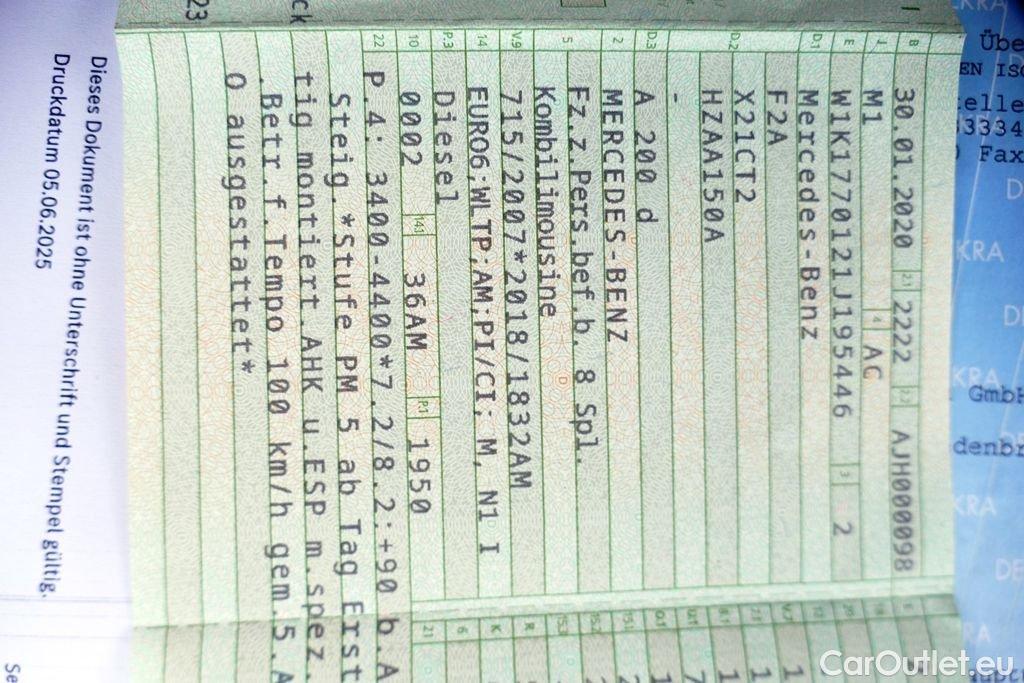 B 30.01.2020 2.1 2222 2.2 AJH000098
J M1 4 AC
E W1K1770121J195446 3 2
D.1 Mercedes-Benz
F2A
D.2 X21CT2
HZAA150A
-
D.3 A 200 d
2 MERCEDES-BENZ
5 Fz.z.Pers.bef.b. 8 Spl.
Kombilimousine
V.9 715/2007*2018/1832AM
14 EURO6;WLTP;AM;PI/CI; M, N1 I
P.3 Diesel
10 0002 14.1 36AM P.1 1950
22 P.4: 3400-4400*7.2/8.2:+90 b.A
Steig.*Stufe PM 5 ab Tag Erst
tig montiert.AHK u.ESP m.spez.
.Betr.f.Tempo 100 km/h gem.5.A
O ausgestattet*
21
6
K
R
Dieses Dokument ist ohne Unterschrift und Stempel gültig.
Druckdatum 05.06.2025
23
ck
Übe
EN ISO
elle
3334
Fax
GmbH
denbr
KRA
DE
CarOutlet.eu